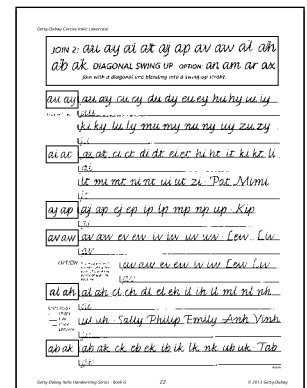 Getty-Dubay Cursive Italic Lowercase
JOIN 2: au ay ai at aj ap av aw al ah
ab ak DIAGONAL SWING UP OPTION: an am ar ax
Join with a diagonal line blending into a swing-up stroke.
au ay au ay cu cy du dy eu ey hu hy iu iy
ki ky lu ly mu my nu ny uy zu zy
ai at ai at ci ct di dt ei et hi ht it ki kt li
lt mi mt ni nt ui ut zi · Pat Mimi
aj ap aj ap ej ep ip lp mp np up · Kip
av aw av aw ev ew iv iw uv uw · Lew Liv
OPTION av aw ev ew iv iw uv uw · Lew Liv
al ah al ah cl ch dl el eh il ih ll ml nl nh
ul uh · Sally Philip Emily Anh Vinh
ab ak ab ak ck eb ek ib ik lk nk ub uk · Tab
Getty-Dubay Italic Handwriting Series · Book G 22 © 2013 Getty-Dubay